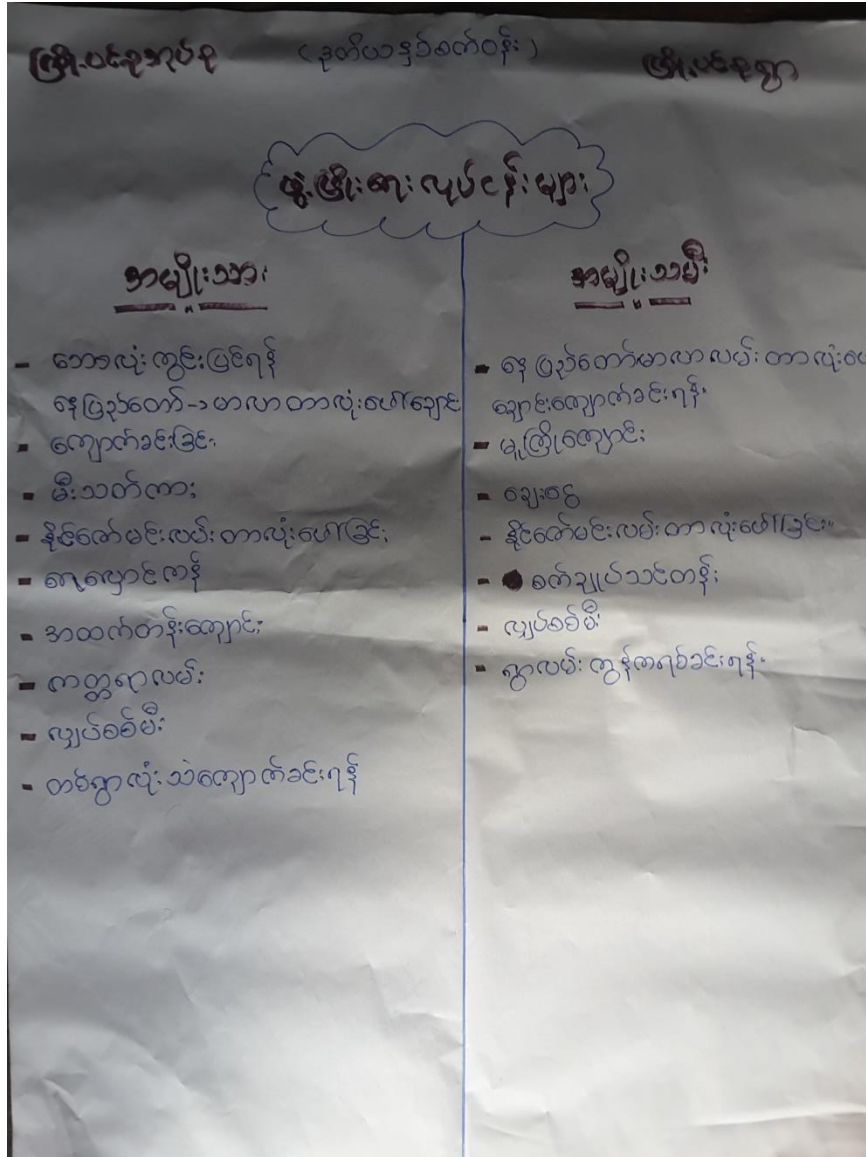 ကြိုးပင်စုအုပ်စု
(ဒုတိယနှစ်စက်ဝန်း)
ကြိုးပင်စုရွာ
ဖွံ့ဖြိုးရေးလုပ်ငန်းများ
အမျိုးသား
- ဘောလုံးကွင်းပြင်ရန်
နေပြည်တော်->မာလာတာလုံးပေါ်ချောင်း
- ကျောက်ခင်းခြင်း
- မီးသတ်ကား
- နိုင်ဇော်မင်းလမ်းတာလုံးပေါ်ခြင်း
- ရေလှောင်ကန်
- အထက်တန်းကျောင်း
- ကတ္တရာလမ်း
- လျှပ်စစ်မီး
- တစ်ရွာလုံးသဲကျောက်ခင်းရန်
အမျိုးသမီး
- နေပြည်တော်မာလာလမ်းတာလုံးပေ
ချောင်းကျောက်ခင်းရန်။
- မူကြိုကျောင်း
- ချေးငွေ
- နိုင်ဇော်မင်းလမ်းတာလုံးပေါ်ခြင်း။
- စက်ချုပ်သင်တန်း
- လျှပ်စစ်မီး
- ရွာလမ်းကွန်ကရစ်ခင်းရန်။